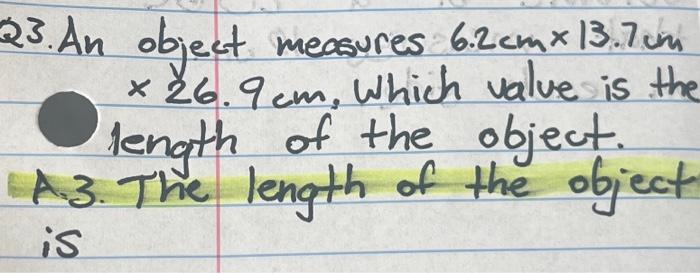 Q3. An object measures 6.2cm x 13.7cm
x 26.9cm. Which value is the
length of the object.
A.3. The length of the object
is